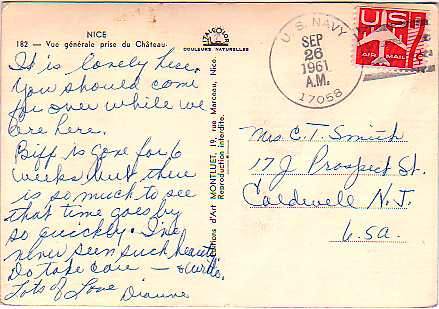 NICE
182 — Vue générale prise du Château
COULEURS NATURELLES
U.S. NAVY
SEP
26
1961
A.M.
17058
US
AIR MAIL
It is lovely here.
You should come
for over while we
are here.
Biff is gone for 6
weeks but there
is so much to see
that time goes by
so quickly. I've
never seen such beauty.
Do take care —
Lots of Love Dianne
Editions d'Art MONTLUET, 19, rue Marceau, Nice.
Reproduction interdite.
Mrs. C. T. Smith
17 J Prospect St.
Caldwell N. J.
U.S.A.